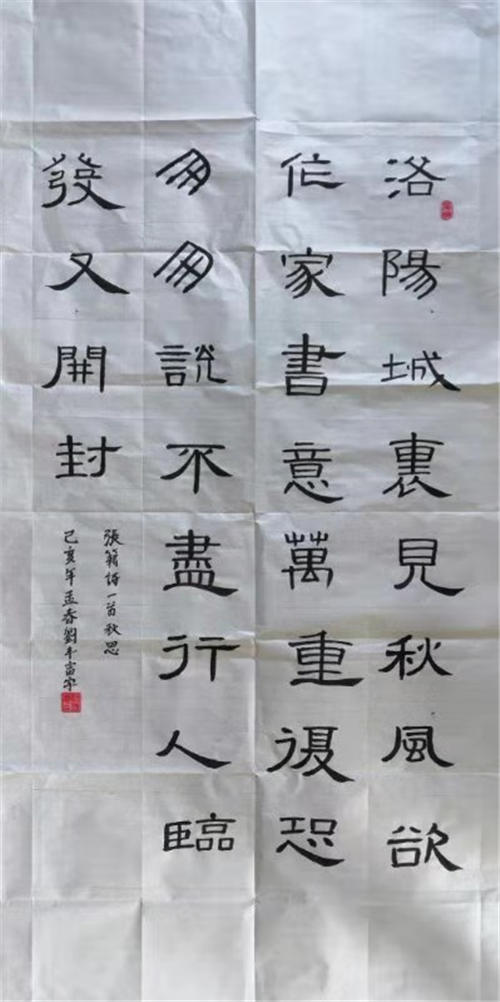 洛陽城裏見秋風欲
作家書意萬重復恐
匆匆說不盡行人臨
發又開封
張籍詩一首秋思
己亥年孟春劉千富字